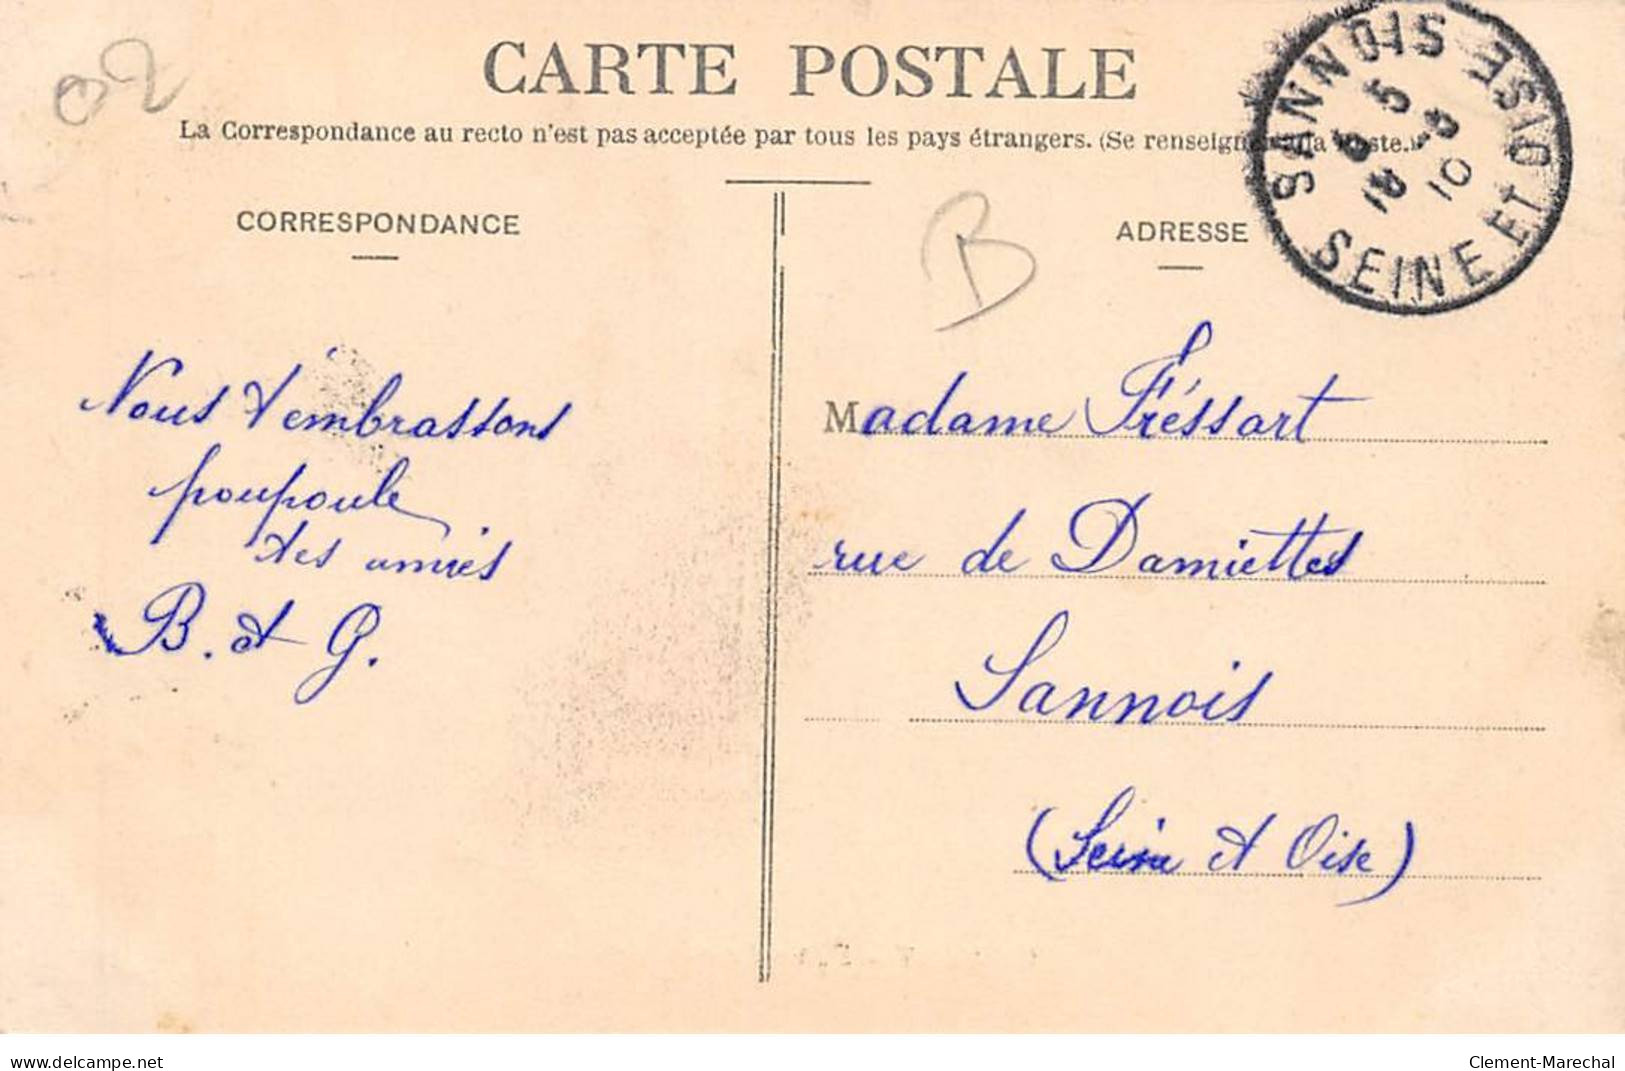 02
CARTE POSTALE
La Correspondance au recto n'est pas acceptée par tous les pays étrangers. (Se renseigner à la Poste.)
SANNOIS
SEINE ET OISE
10
CORRESPONDANCE
B
ADRESSE
Nous t'embrassons
poupoule
tes amies
B. et G.
Madame Fréssart
rue de Damiettes
Sannois
(Seine et Oise)
delcampe.net
Clement-Marechal